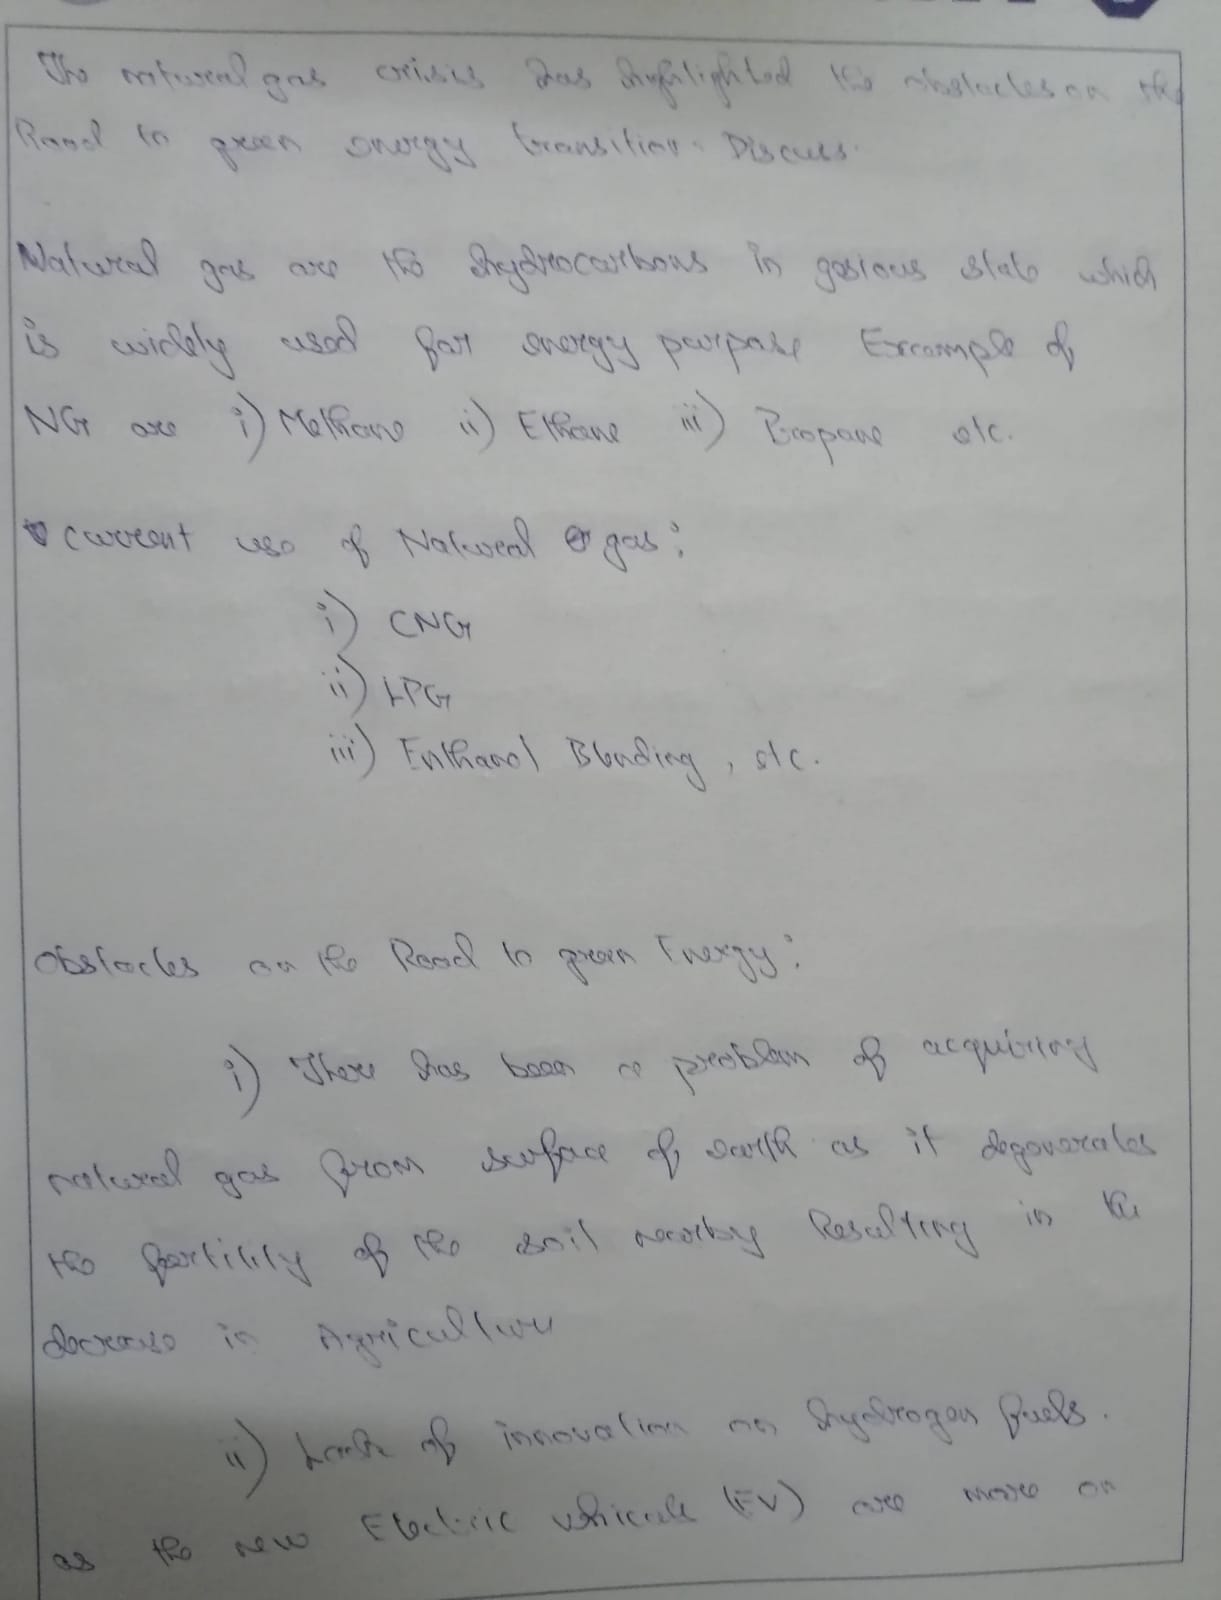 The natural gas crisis has highlighted the obstacles on the
Road to green energy transition. Discuss.
Natural gas are the hydrocarbons in gasious state which
is widely used for energy purpose Example of
NG are i) Methane ii) Ethane iii) Propane etc.
Current use of Natural gas:
i) CNG
ii) LPG
iii) Enthanol Blending, etc.
Obstacles on the Road to green Energy:
i) There has been a problem of acquiring
natural gas from surface of earth as it degenerates
the fertility of the soil nearby Resulting in the
decrease in Agriculture
ii) Lack of innovation on hydrogen fuels.
as the new Electric vehicals (EV) are more on